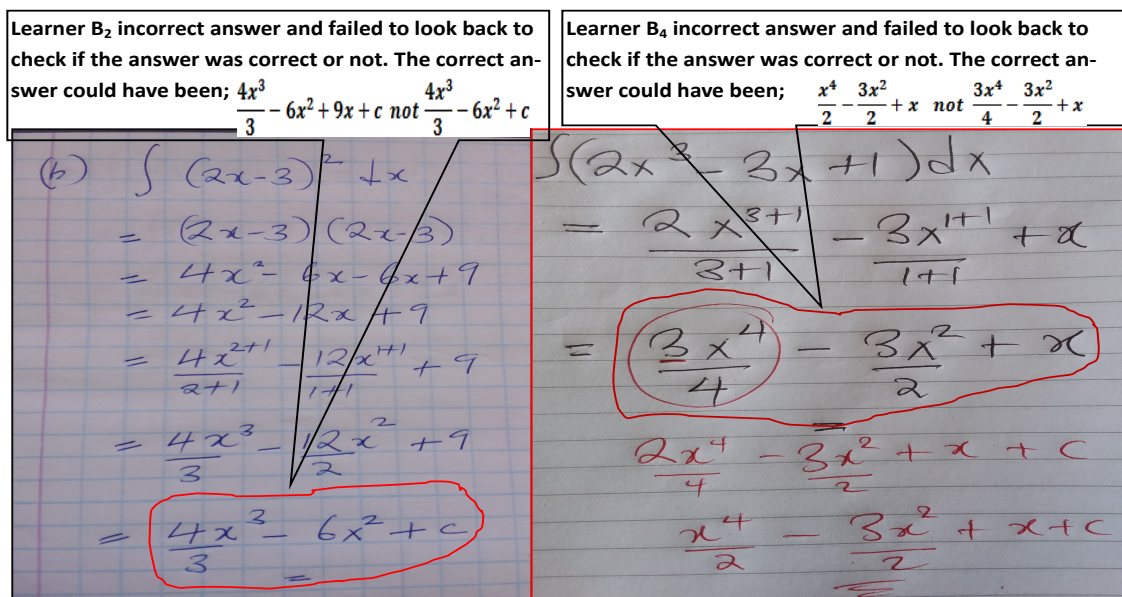 Learner B₂ incorrect answer and failed to look back to
check if the answer was correct or not. The correct an-
swer could have been; 4x³/3 − 6x² + 9x + c not 4x³/3 − 6x² + c
(b) ∫ (2x-3)² dx
= (2x-3)(2x-3)
= 4x² - 6x - 6x + 9
= 4x² - 12x + 9
= 4x²⁺¹/2+1 - 12x¹⁺¹/1+1 + 9
= 4x³/3 - 12x²/2 + 9
= 4x³/3 - 6x² + c
Learner B₄ incorrect answer and failed to look back to
check if the answer was correct or not. The correct an-
swer could have been; x⁴/2 − 3x²/2 + x not 3x⁴/4 − 3x²/2 + x
∫(2x³ - 3x + 1)dx
= 2x³⁺¹/3+1 - 3x¹⁺¹/1+1 + x
= 3x⁴/4 - 3x²/2 + x
2x⁴/4 - 3x²/2 + x + c
x⁴/2 - 3x²/2 + x + c